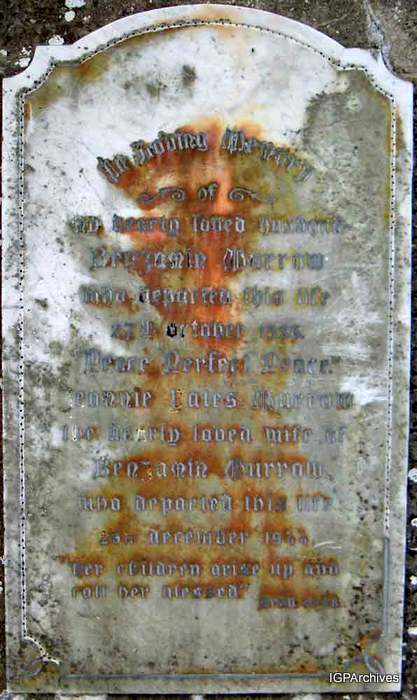 In Loving Memory
of
my dearly loved husband
Benjamin Murrow
who departed this life
27th October
"Peace Perfect Peace."
Jeannie Murrow
the dearly loved wife of
Benjamin Murrow
who departed this life
December 1944
"Her children arise up and
call her blessed"
IGPArchives